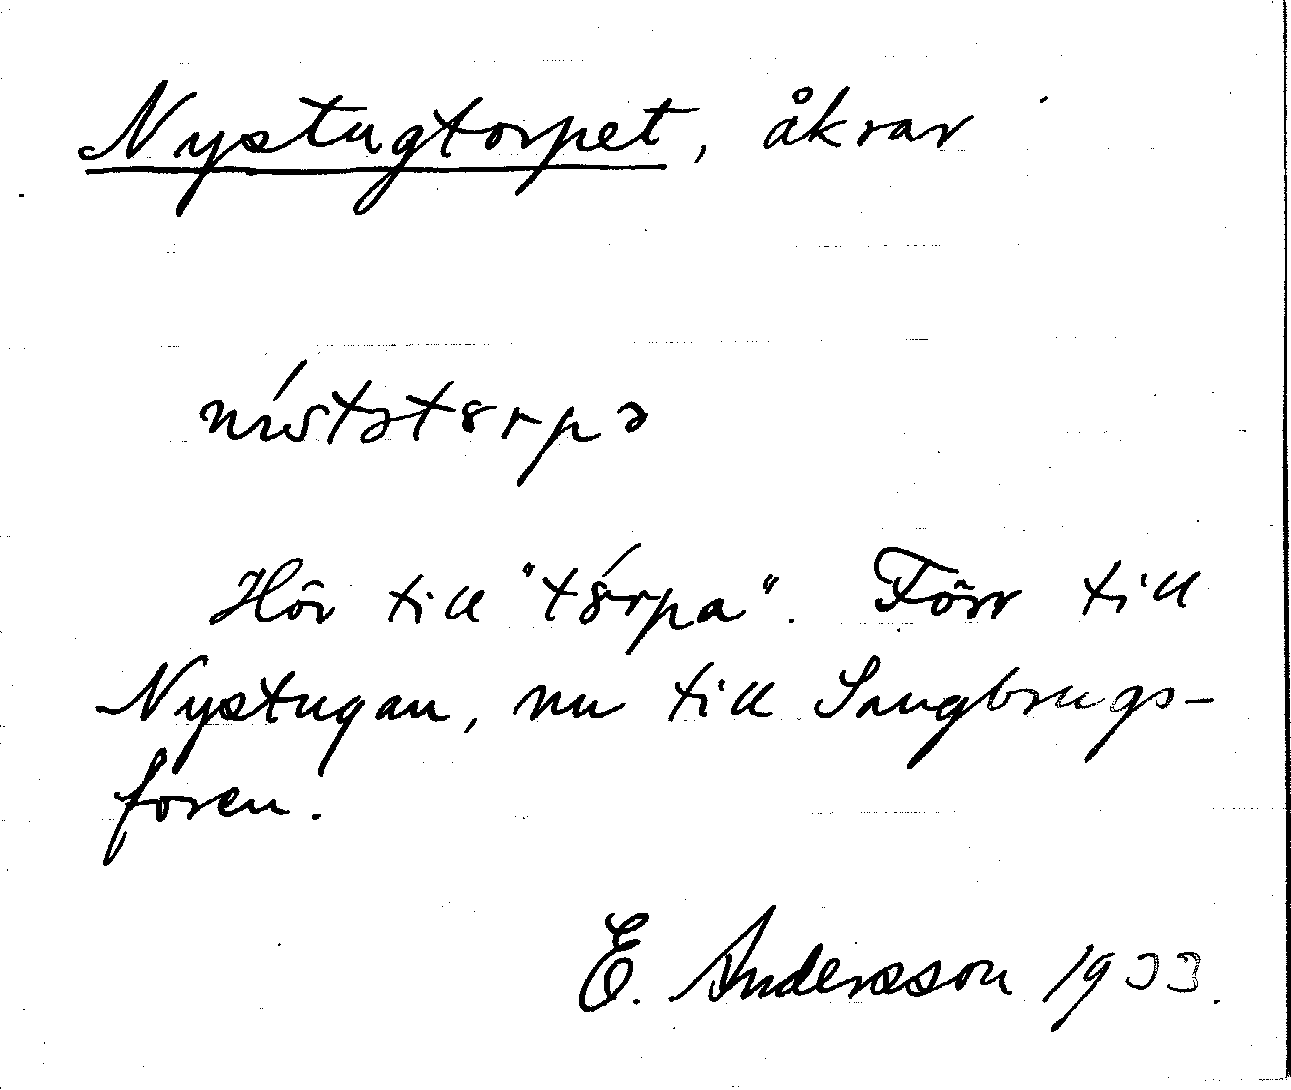 Nystugtorpet, åkrar
nístətɞrpə
Hör till "tɞ́rpa". Förr till
Nystugan, nu till Sangbrugs-
foren.
E. Andersson 1933.